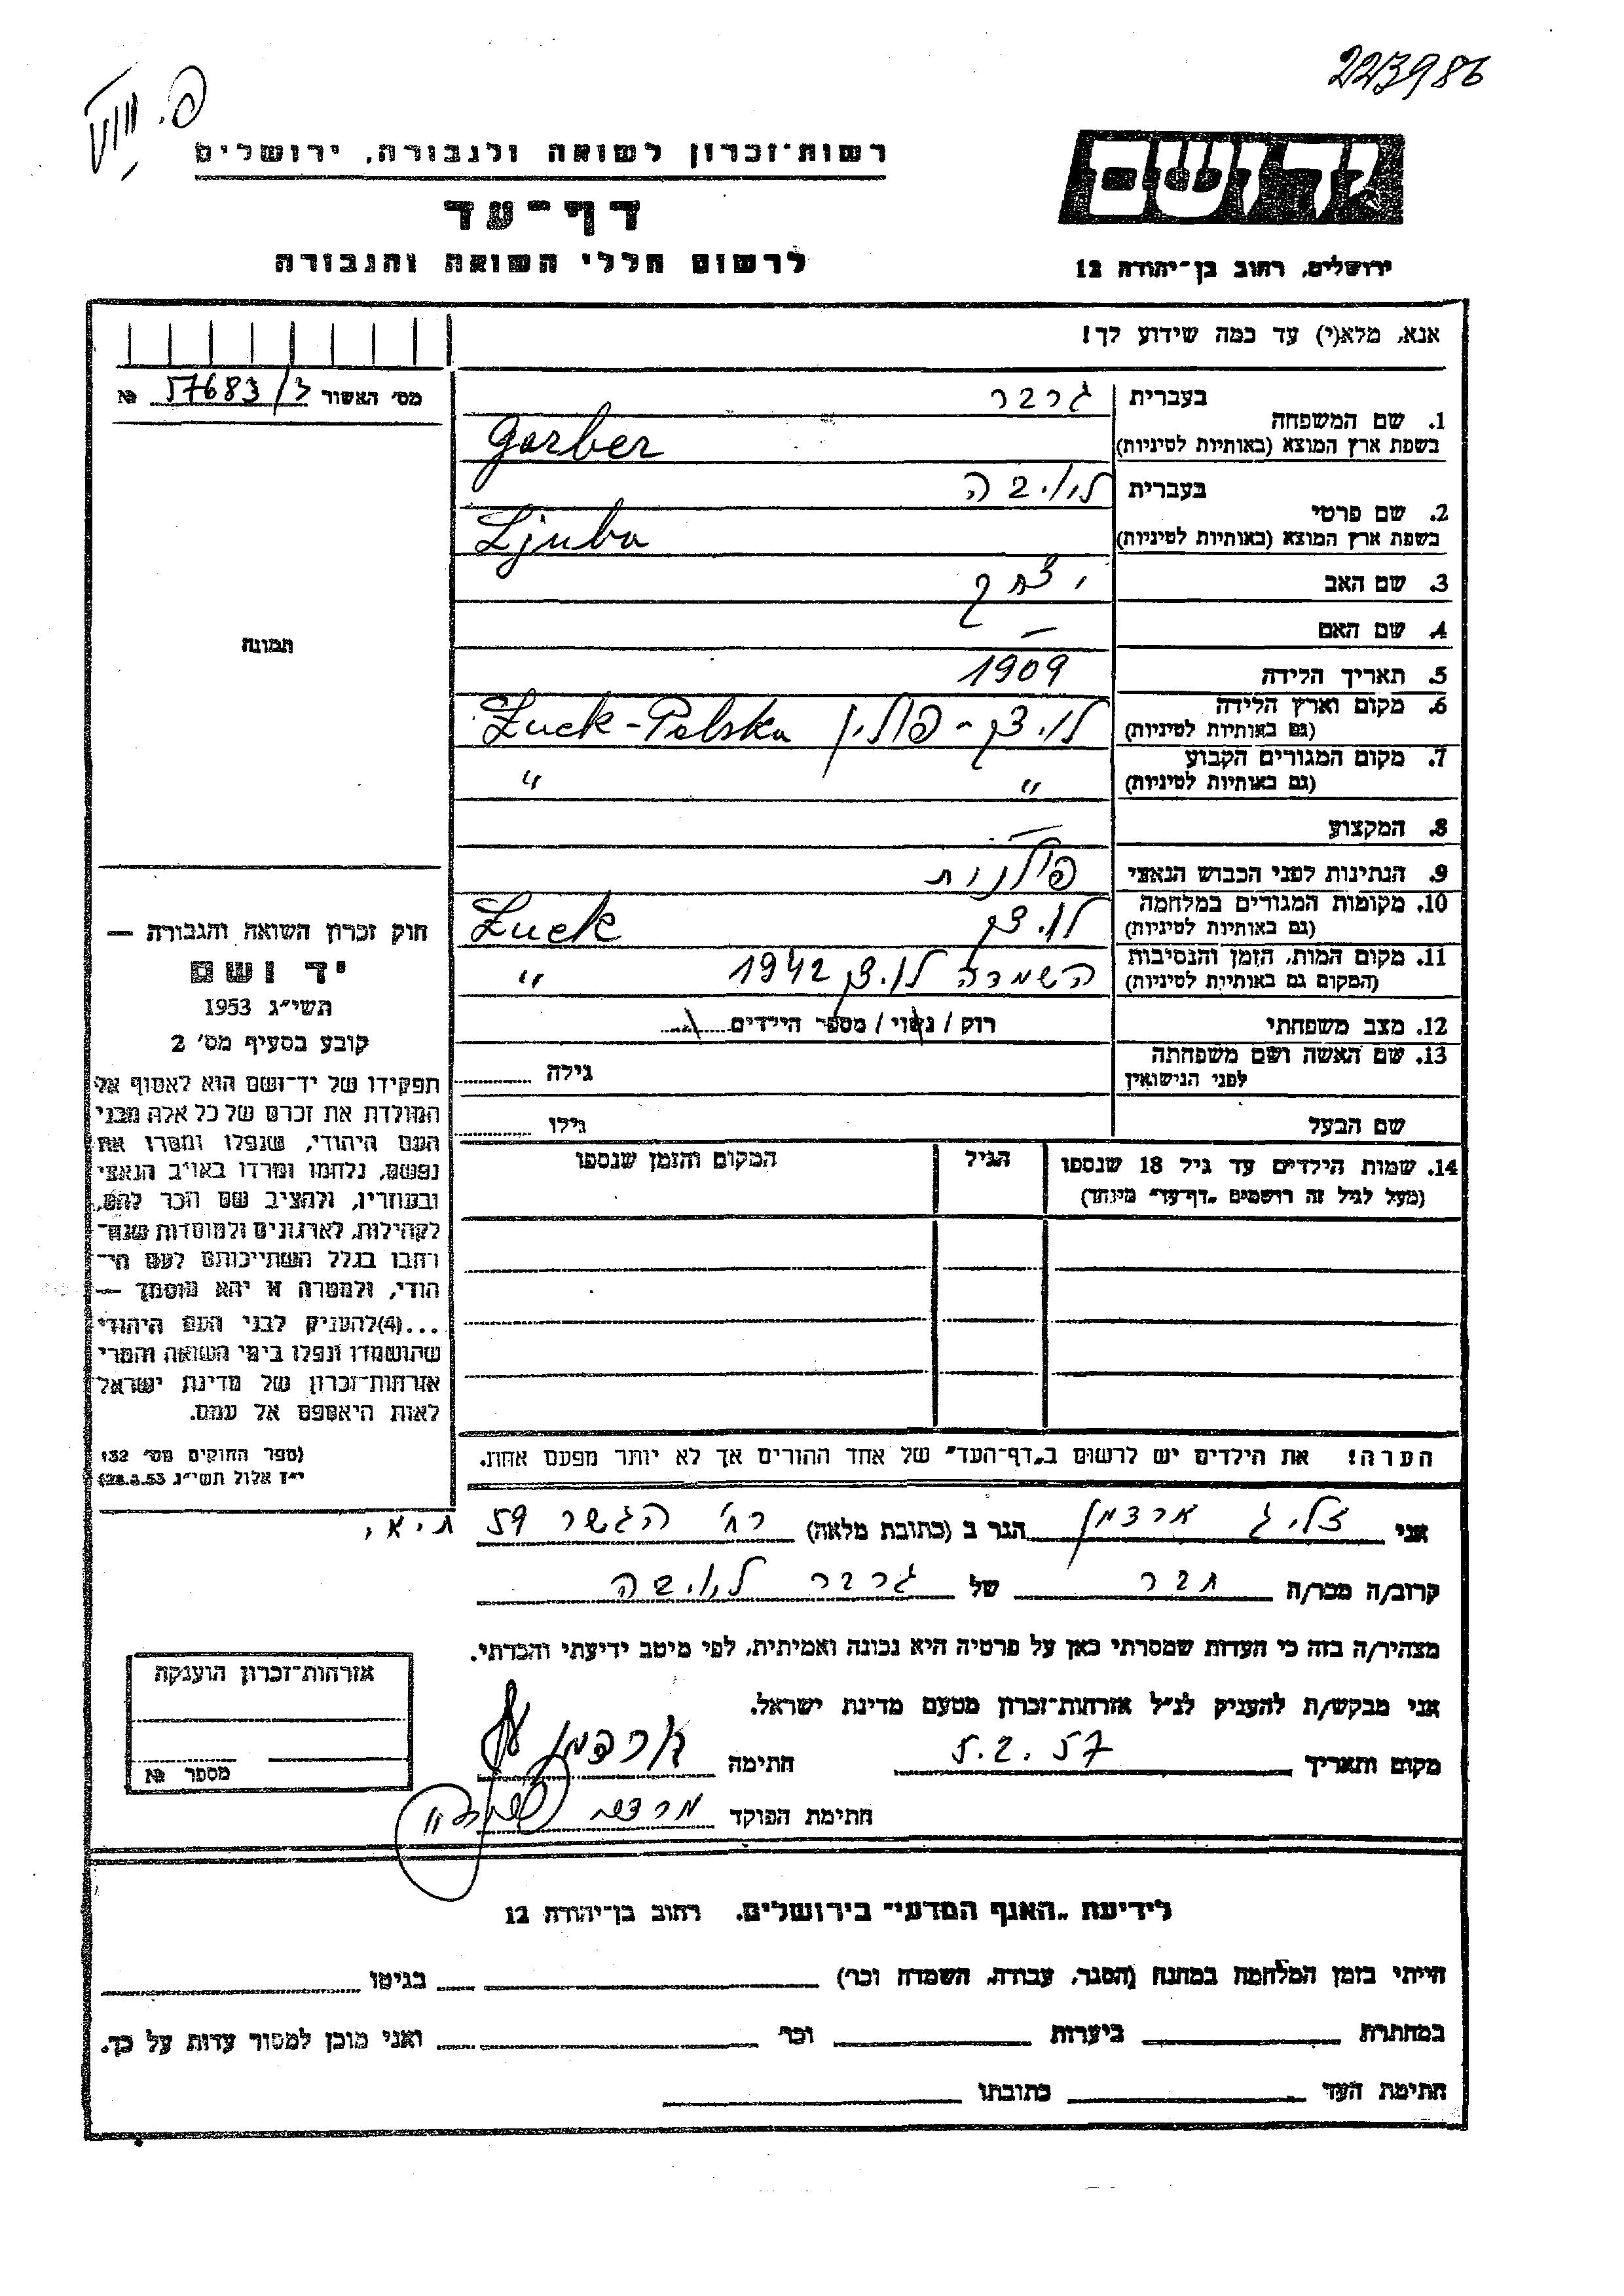 223986
רשות-זכרון לשואה ולגבורה, ירושלים
יד ושם
דף-עד
לרשום חללי השואה והגבורה
ירושלים, רחוב בן-יהודה 12
אנא, מלא(י) עד כמה שידוע לך!
מס' האשור 57683/3 №
1. שם המשפחה בעברית גרבר
בשפת ארץ המוצא (באותיות לטיניות) Garber
2. שם פרטי בעברית לויבה
בשפת ארץ המוצא (באותיות לטיניות) Ljuba
3. שם האב יצחק
4. שם האם —
5. תאריך הלידה 1909
6. מקום וארץ הלידה לוצק - פולין Łuck - Polska
(גם באותיות לטיניות)
7. מקום המגורים הקבוע " "
(גם באותיות לטיניות)
8. המקצוע —
9. הנתינות לפני הכבוש הנאצי פולנית
10. מקומות המגורים במלחמה לוצק Łuck
(גם באותיות לטיניות)
11. מקום המות, הזמן והנסיבות השמדה לוצק 1942 "
(המקום גם באותיות לטיניות)
12. מצב משפחתי רוק / נשוי / מספר הילדים
13. שם האשה ושם משפחתה גילה
לפני הנישואין
שם הבעל גילו
14. שמות הילדים עד גיל 18 שנספו הגיל המקום והזמן שנספו
(מעל לגיל זה רושמים „דף-עד" מיוחד)
תמונה
חוק זכרון השואה והגבורה —
יד ושם
תשי"ג 1953
קובע בסעיף מס' 2
תפקידו של יד-ושם הוא לאסוף אל
המולדת את זכרם של כל אלה מבני
העם היהודי, שנפלו ומסרו את
נפשם, נלחמו ומרדו באויב הנאצי
ובעוזריו, ולהציב שם וזכר להם,
לקהילות, לארגונים ולמוסדות שנח-
רבו בגלל השתייכותם לעם הי-
הודי, ולמטרה זו יהא מוסמך —
...(4)להעניק לבני העם היהודי
שהושמדו ונפלו בימי השואה והמרי
אזרחות-זכרון של מדינת ישראל
לאות היאספם אל עמם.
(ספר החוקים מס' 132
י"ז אלול תשי"ג 28.8.53)
הערה! את הילדים יש לרשום ב„דף-העד" של אחד ההורים אך לא יותר מפעם אחת.
אני זליג ארדמן הגר ב (כתובת מלאה) רח' הגשר 59 ת״א
קרוב/ה מכר/ה חבר של גרבר לויבה
מצהיר/ה בזה כי העדות שמסרתי כאן על פרטיה היא נכונה ואמיתית, לפי מיטב ידיעתי והכרתי.
אני מבקש/ת להעניק לנ"ל אזרחות-זכרון מטעם מדינת ישראל.
מקום ותאריך 5.2.57 חתימה ארדמן
חתימת הפוקד
אזרחות-זכרון הוענקה
מספר №
לידיעת „האגף המדעי" בירושלים, רחוב בן-יהודה 12
הייתי בזמן המלחמה במחנה (הסגר, עבודה, השמדה וכו') בגיטו
במחתרת ביערות וכו' ואני מוכן למסור עדות על כך.
חתימת העד כתובתו